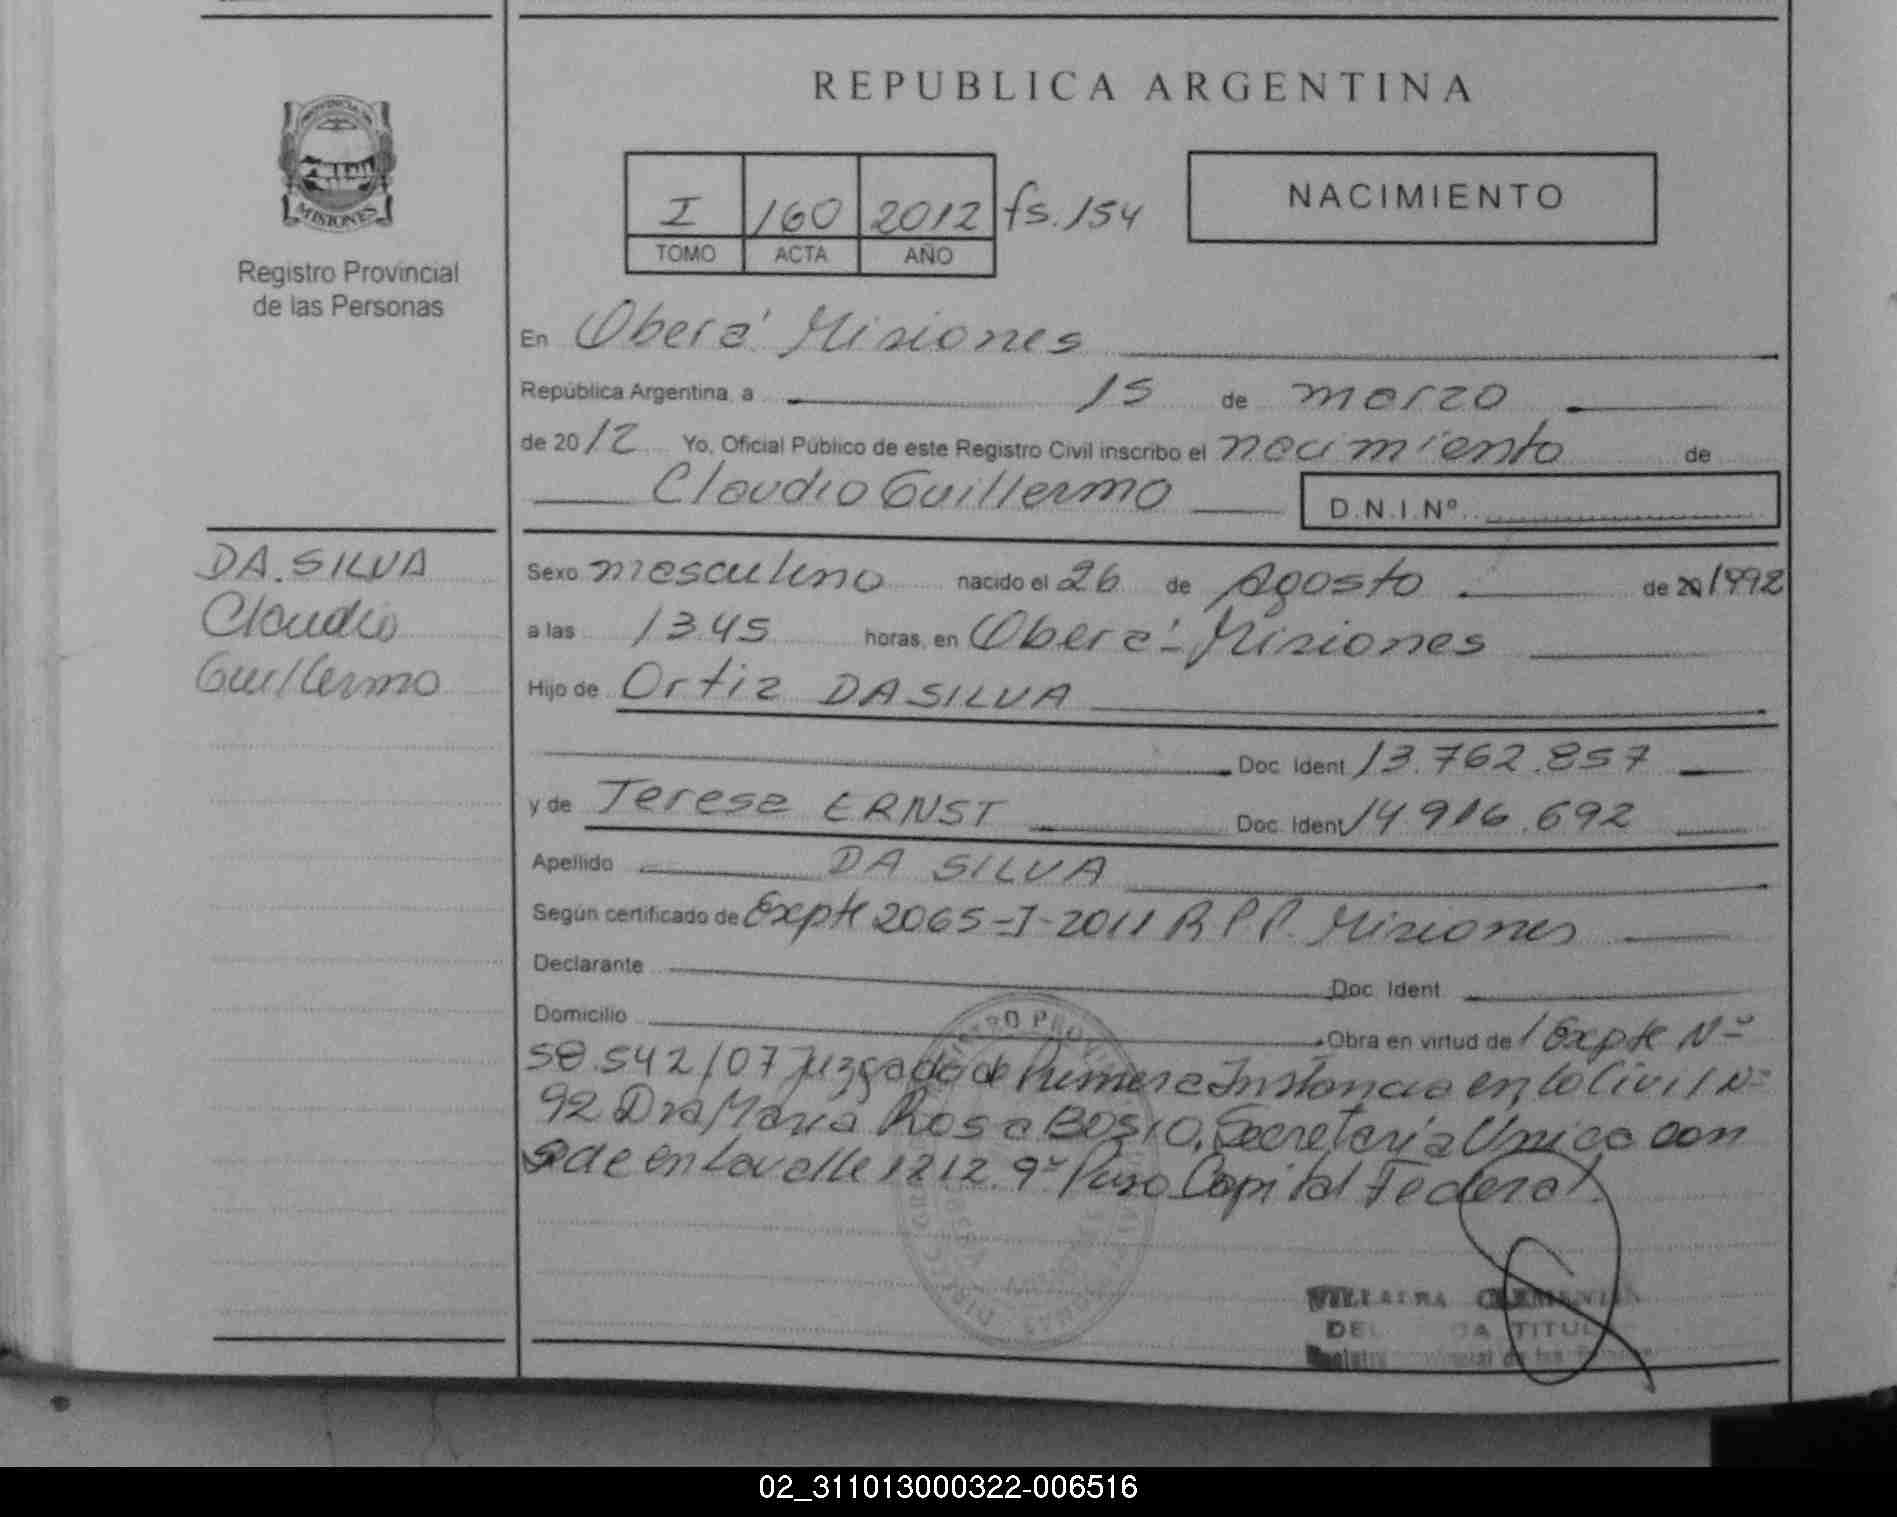 REPUBLICA ARGENTINA
PROVINCIA DE
MISIONES
Registro Provincial
de las Personas
I 160 2012 fs. 154
TOMO ACTA AÑO
NACIMIENTO
En Oberá Misiones
República Argentina, a 15 de marzo
de 2012 Yo, Oficial Público de este Registro Civil inscribo el nacimiento de
Claudio Guillermo D.N.I.Nº
DA.SILVA
Claudio
Guillermo
Sexo masculino nacido el 26 de Agosto de 20 1992
a las 13.45 horas, en Oberá - Misiones
Hijo de Ortiz DA SILVA
Doc. Ident. 13.762.857
y de Teresa ERNST Doc. Ident. 14 916.692
Apellido DA SILVA
Según certificado de Expte 2065-I-2011 R P P. Misiones
Declarante Doc. Ident.
Domicilio Obra en virtud de / Expte Nº
58.542/07 Juzgado de Primera Instancia en lo Civil Nº
92 Dra Maria Rosa BOSIO, Secretaría Unica con
sede en Lavalle 1212 9º Piso Capital Federal.
VILLALBA
TITUL
02_311013000322-006516